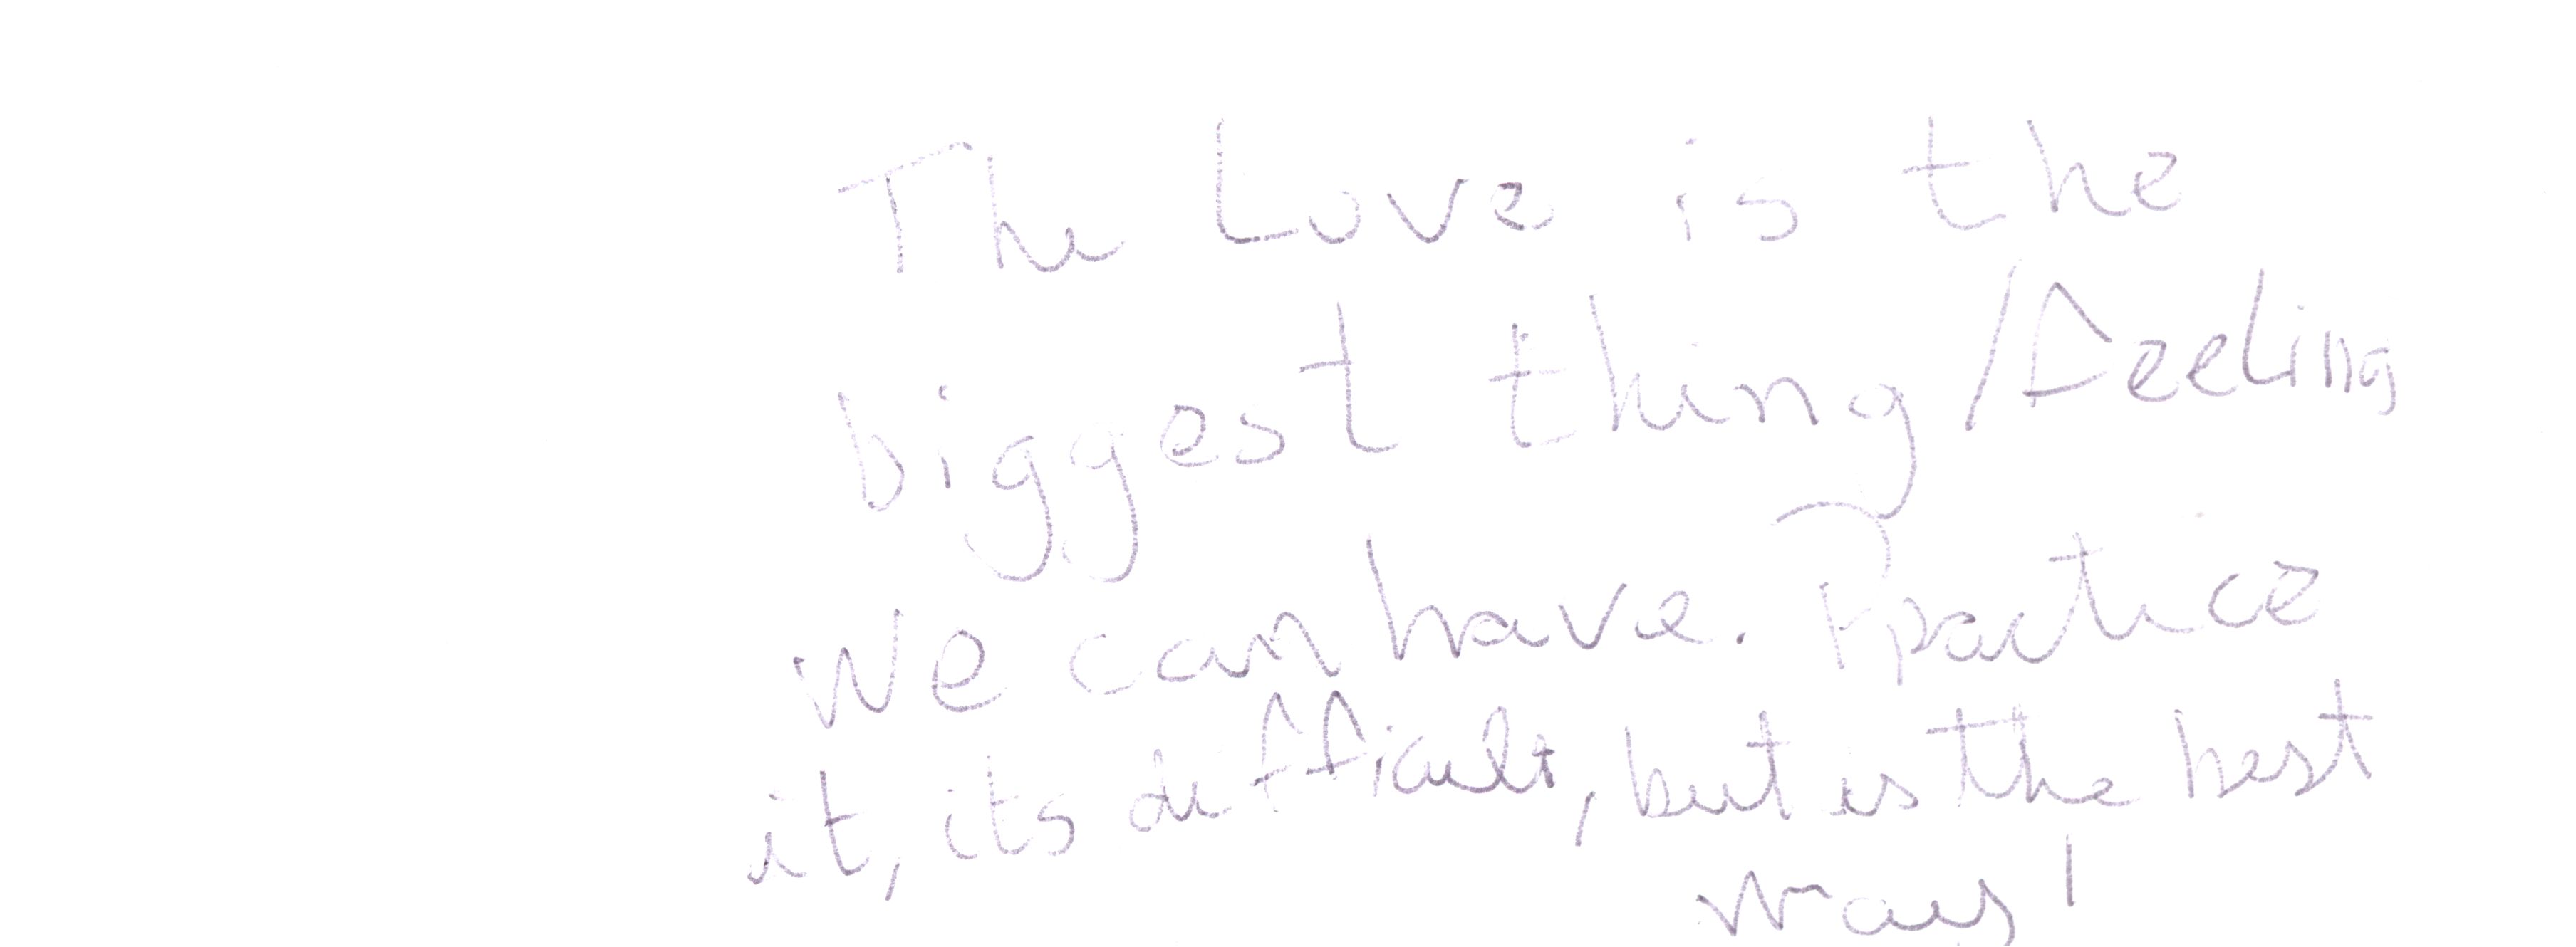 The Love is the
biggest thing/feeling
We can have. Practice
it, its difficult, but is the best
way!